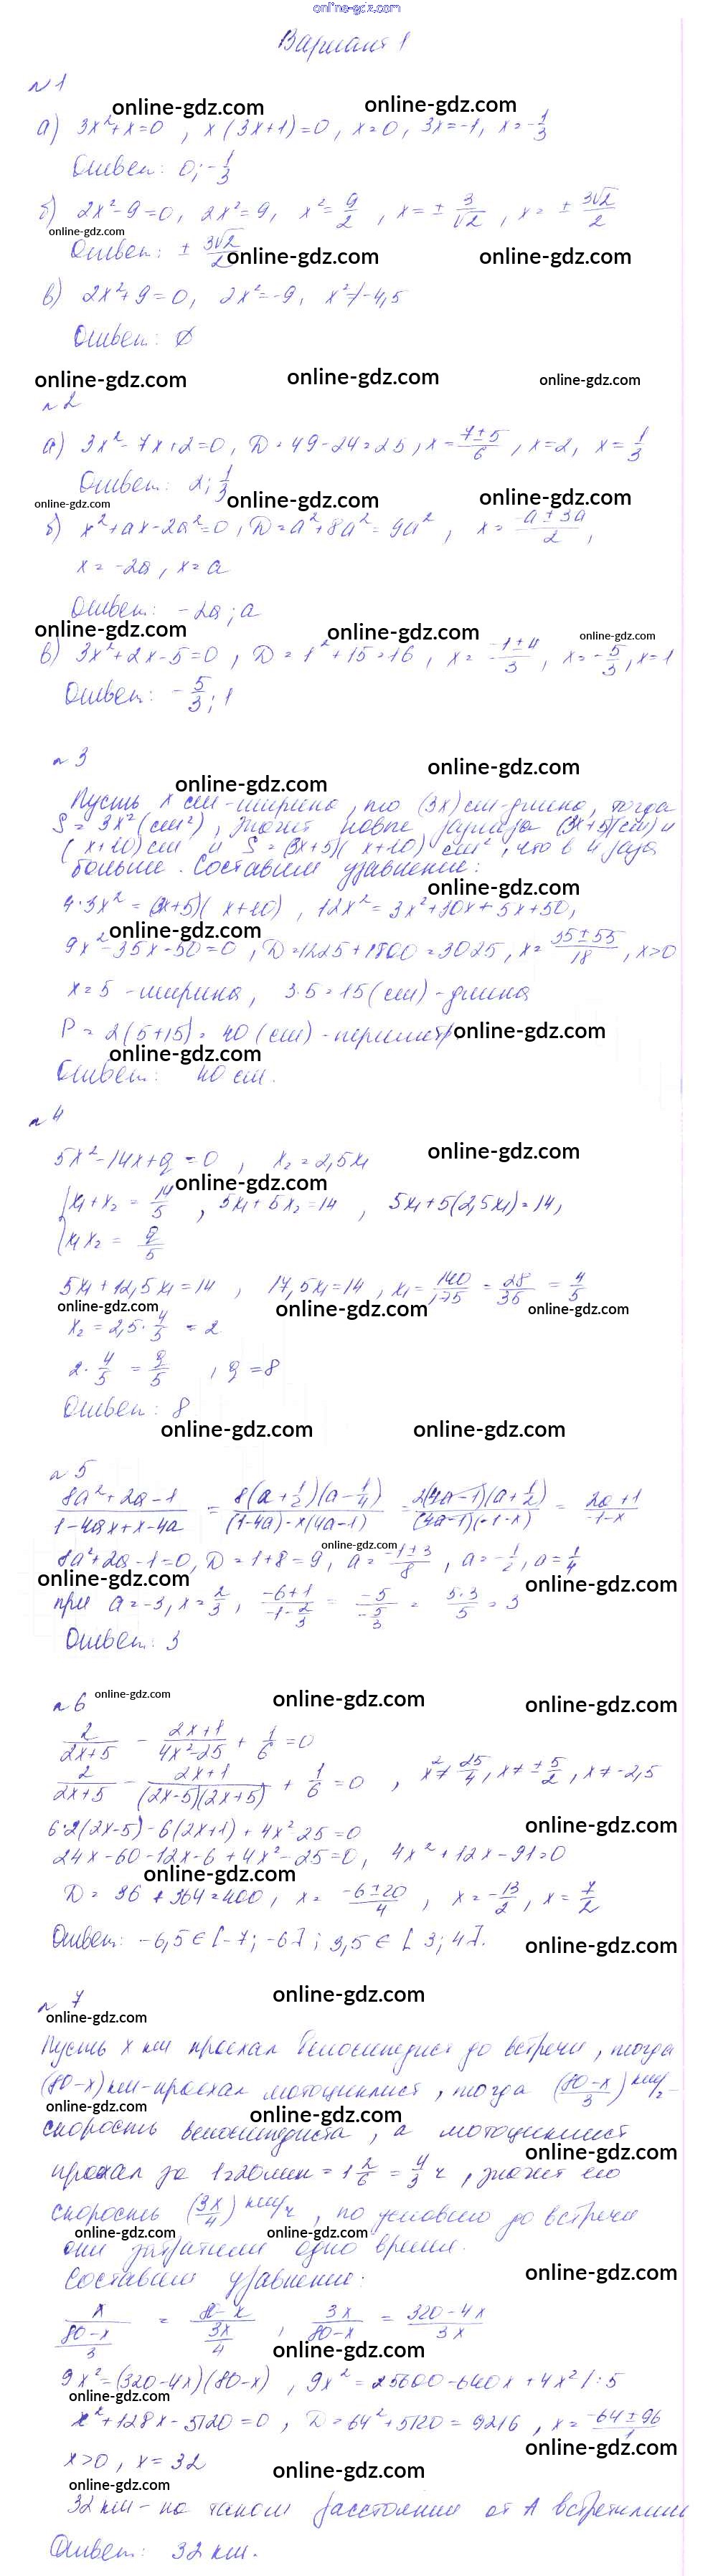 online-gdz.com
Вариант 1
№1
online-gdz.com online-gdz.com
а) 3x²+x=0 , x(3x+1)=0, x=0, 3x=-1, x=-1/3
Ответ: 0; -1/3
б) 2x²-9=0, 2x²=9, x²=9/2 , x=± 3/√2 , x= ± 3√2/2
online-gdz.com
Ответ: ± 3√2/2
online-gdz.com online-gdz.com
в) 2x²+9=0, 2x²=-9, x²≠-4,5
Ответ: ∅
online-gdz.com online-gdz.com online-gdz.com
№2
а) 3x²-7x+2=0, D=49-24=25, x=(7±5)/6 , x=2, x=1/3
Ответ: 2; 1/3
online-gdz.com online-gdz.com online-gdz.com
б) x²+ax-2a²=0, D=a²+8a²=9a² , x= (-a±3a)/2 ,
x=-2a, x=a
Ответ: -2a; a
online-gdz.com online-gdz.com online-gdz.com
в) 3x²+2x-5=0 , D=1²+15=16 , x= (-1±4)/3 , x=-5/3, x=1
Ответ: -5/3; 1
№3
online-gdz.com
online-gdz.com
Пусть x см-ширина, то (3x)см-длина, тогда
S=3x²(см²), значит новые размеры (3x+5)(см) и
(x+10)см и S=(3x+5)(x+10) см², что в 4 раза
больше. Составим уравнение:
online-gdz.com
4·3x²=(3x+5)(x+10) , 12x²=3x²+30x+5x+50,
online-gdz.com
9x²-35x-50=0 , D=1225+1800=3025, x= (35±55)/18 , x>0
x=5 -ширина, 3·5=15(см)-длина
P=2(5+15)=40(см)-периметр
online-gdz.com
online-gdz.com
Ответ: 40 см.
№4
online-gdz.com
5x²-14x+q=0 , x₂=2,5x₁
online-gdz.com
{x₁+x₂= 14/5 , 5x₁+5x₂=14 , 5x₁+5(2,5x₁)=14,
x₁x₂= q/5
5x₁+12,5x₁=14 , 17,5x₁=14 , x₁= 140/175 = 28/35 = 4/5
online-gdz.com online-gdz.com online-gdz.com
x₂=2,5·4/5 =2
2·4/5 = q/5 , q=8
Ответ: 8
online-gdz.com online-gdz.com
№5
(8a²+2a-1)/(1-4ax+x-4a) = 8(a+1/2)(a-1/4)/((1-4a)-x(4a-1)) = 2(4a-1)(a+1/2)/((4a-1)(-1-x)) = (2a+1)/(-1-x)
online-gdz.com
8a²+2a-1=0, D=1+8=9, a= (-1±3)/8 , a=-1/2, a=1/4
online-gdz.com online-gdz.com
при a=-3, x=2/3, (-6+1)/(-1-2/3) = -5/(-5/3) = 5·3/5 = 3
Ответ: 3
№6
online-gdz.com online-gdz.com online-gdz.com
2/(2x+5) - (2x+1)/(4x²-25) + 1/6 =0
2/(2x+5) - (2x+1)/((2x-5)(2x+5)) + 1/6 =0 , x²≠25/4, x≠±5/2, x≠-2,5
online-gdz.com
6·2(2x-5)-6(2x+1)+4x²-25=0
24x-60-12x-6+4x²-25=0, 4x²+12x-91=0
online-gdz.com
D= 36+364=400, x= (-6±20)/4 , x=-13/2, x=7/2
Ответ: -6,5∈[-7;-6]; 3,5∈[3;4].
online-gdz.com
online-gdz.com
№7
online-gdz.com
Пусть x км проехал велосипедист до встречи, тогда
(80-x)км-проехал мотоциклист, тогда ((80-x)/3) км/ч-
online-gdz.com online-gdz.com
скорость велосипедиста, а мотоциклист
online-gdz.com
проехал за 1ч20мин = 1 2/6 = 4/3 ч, значит его
скорость (3x/4) км/ч, по условию до встречи
online-gdz.com online-gdz.com
они затратили одно время.
online-gdz.com
Составим уравнение:
x/((80-x)/3) = (80-x)/(3x/4) , 3x/(80-x) = (320-4x)/3x
online-gdz.com
9x²=(320-4x)(80-x) , 9x²=25600-640x+4x²/:5
online-gdz.com
x²+128x-5120=0 , D=64²+5120=9216 , x= (-64±96)/1
online-gdz.com
x>0, x=32
online-gdz.com online-gdz.com
32 км-на таком расстоянии от А встретились
Ответ: 32 км.